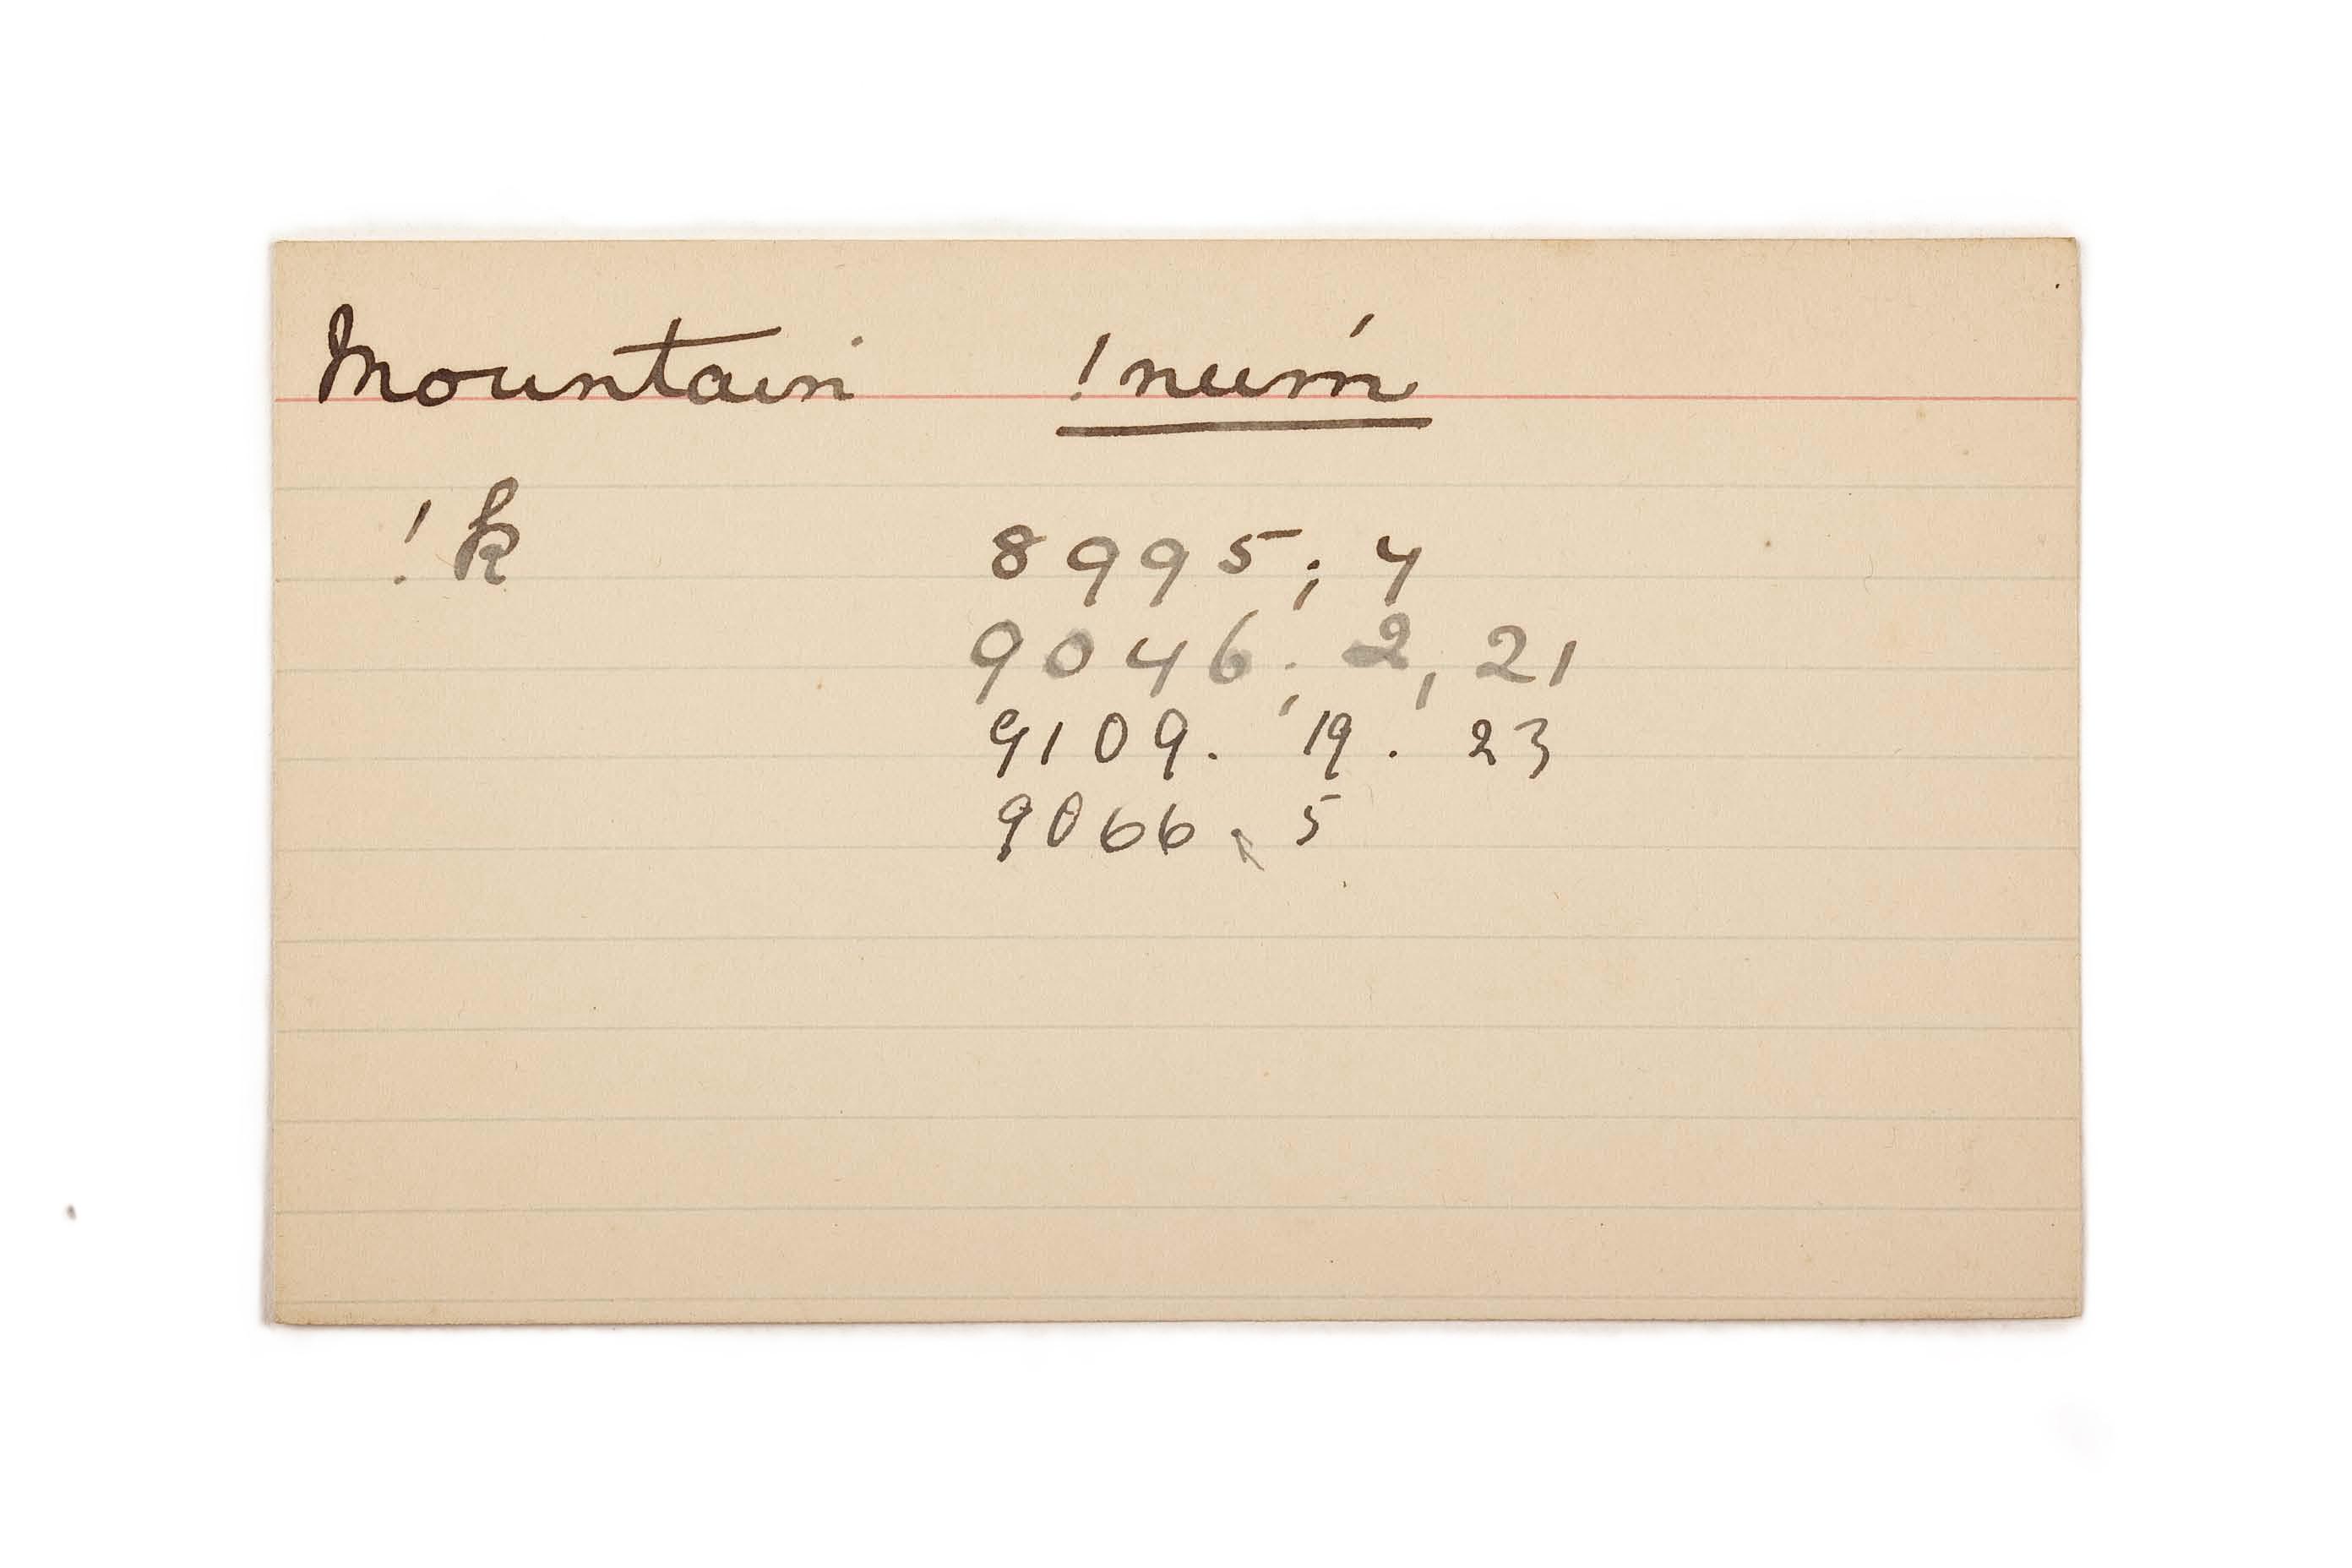 Mountain !num̍
!k 8995; 4
9046; 2, 21
9109. 19. 23
9066, 5